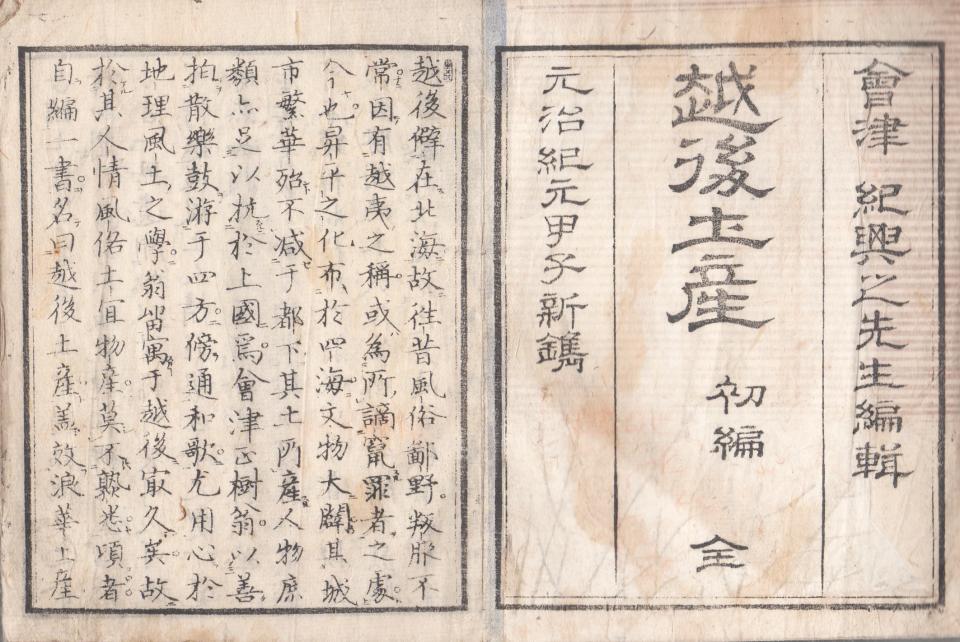 會津 紀興之先生編輯
越後土産 初編 全
元治紀元甲子新鐫
越後僻在北海故徃昔風俗鄙野叛服不
常因有越夷之稱或為所謫竄罪者之處
今也昇平之化布於四海文物大闢其城
市繁華殆不减于都下其土所產人物庶
類亦足以抗於上國焉會津正樹翁以善
拍散樂鼓游于四方傍通和歌尤用心於
地理風土之學翁畄寓于越後㝡久矣故
於其人情風俗土宜物產莫不熟悉頃者
自編一書名曰越後土產盖效浪華土產